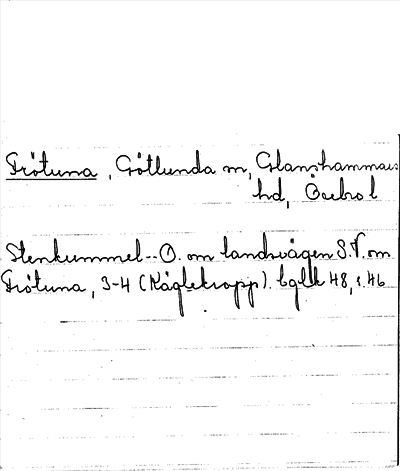 Frötuna, Götlunda sn, Glanshammars
hd, Örebro l
Stenkummel -- O. om landsvägen S.V. om
Frötuna, 3-4 (Käglekropp). bglk 48, s. 46